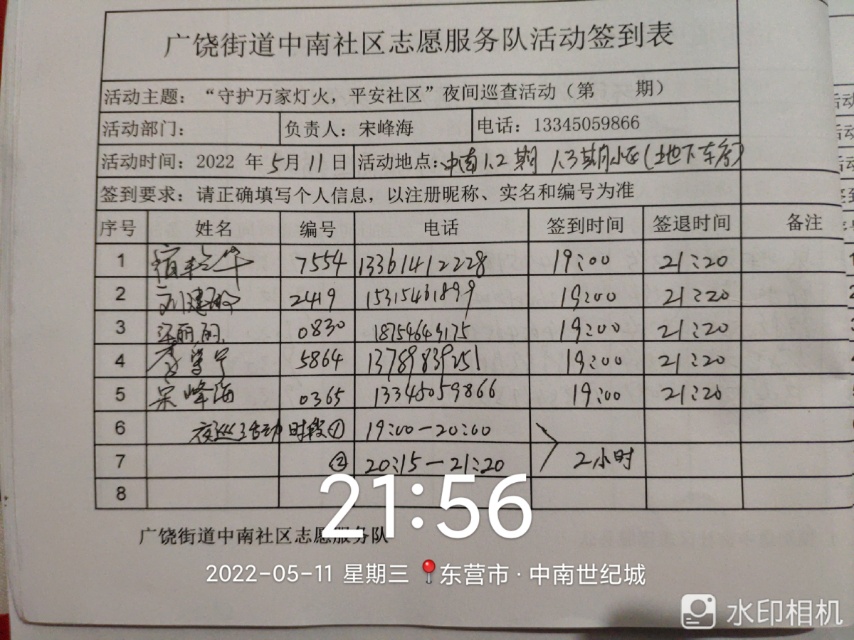 广饶街道中南社区志愿服务队活动签到表
活动主题：“守护万家灯火，平安社区”夜间巡查活动（第 期）
活动部门： 负责人：宋峰海 电话：13345059866
活动时间：2022 年 5月 11 日 活动地点：中南1.2期 1.3期小区（地下车库）
签到要求：请正确填写个人信息，以注册昵称、实名和编号为准
序号 姓名 编号 电话 签到时间 签退时间 备注
1 7554 13361412228 19:00 21:20
2 刘建 2419 15315461899 19:00 21:20
3 梁丽丽 0830 18754644175 19:00 21:20
4 李 宁 5864 13789839251 19:00 21:20
5 宋峰海 0365 13345059866 19:00 21:20
6 夜巡活动时段① 19:00-20:00
7 ② 20:15-21:20 2小时
8
广饶街道中南社区志愿服务队
21:56
2022-05-11 星期三 东营市·中南世纪城
水印相机